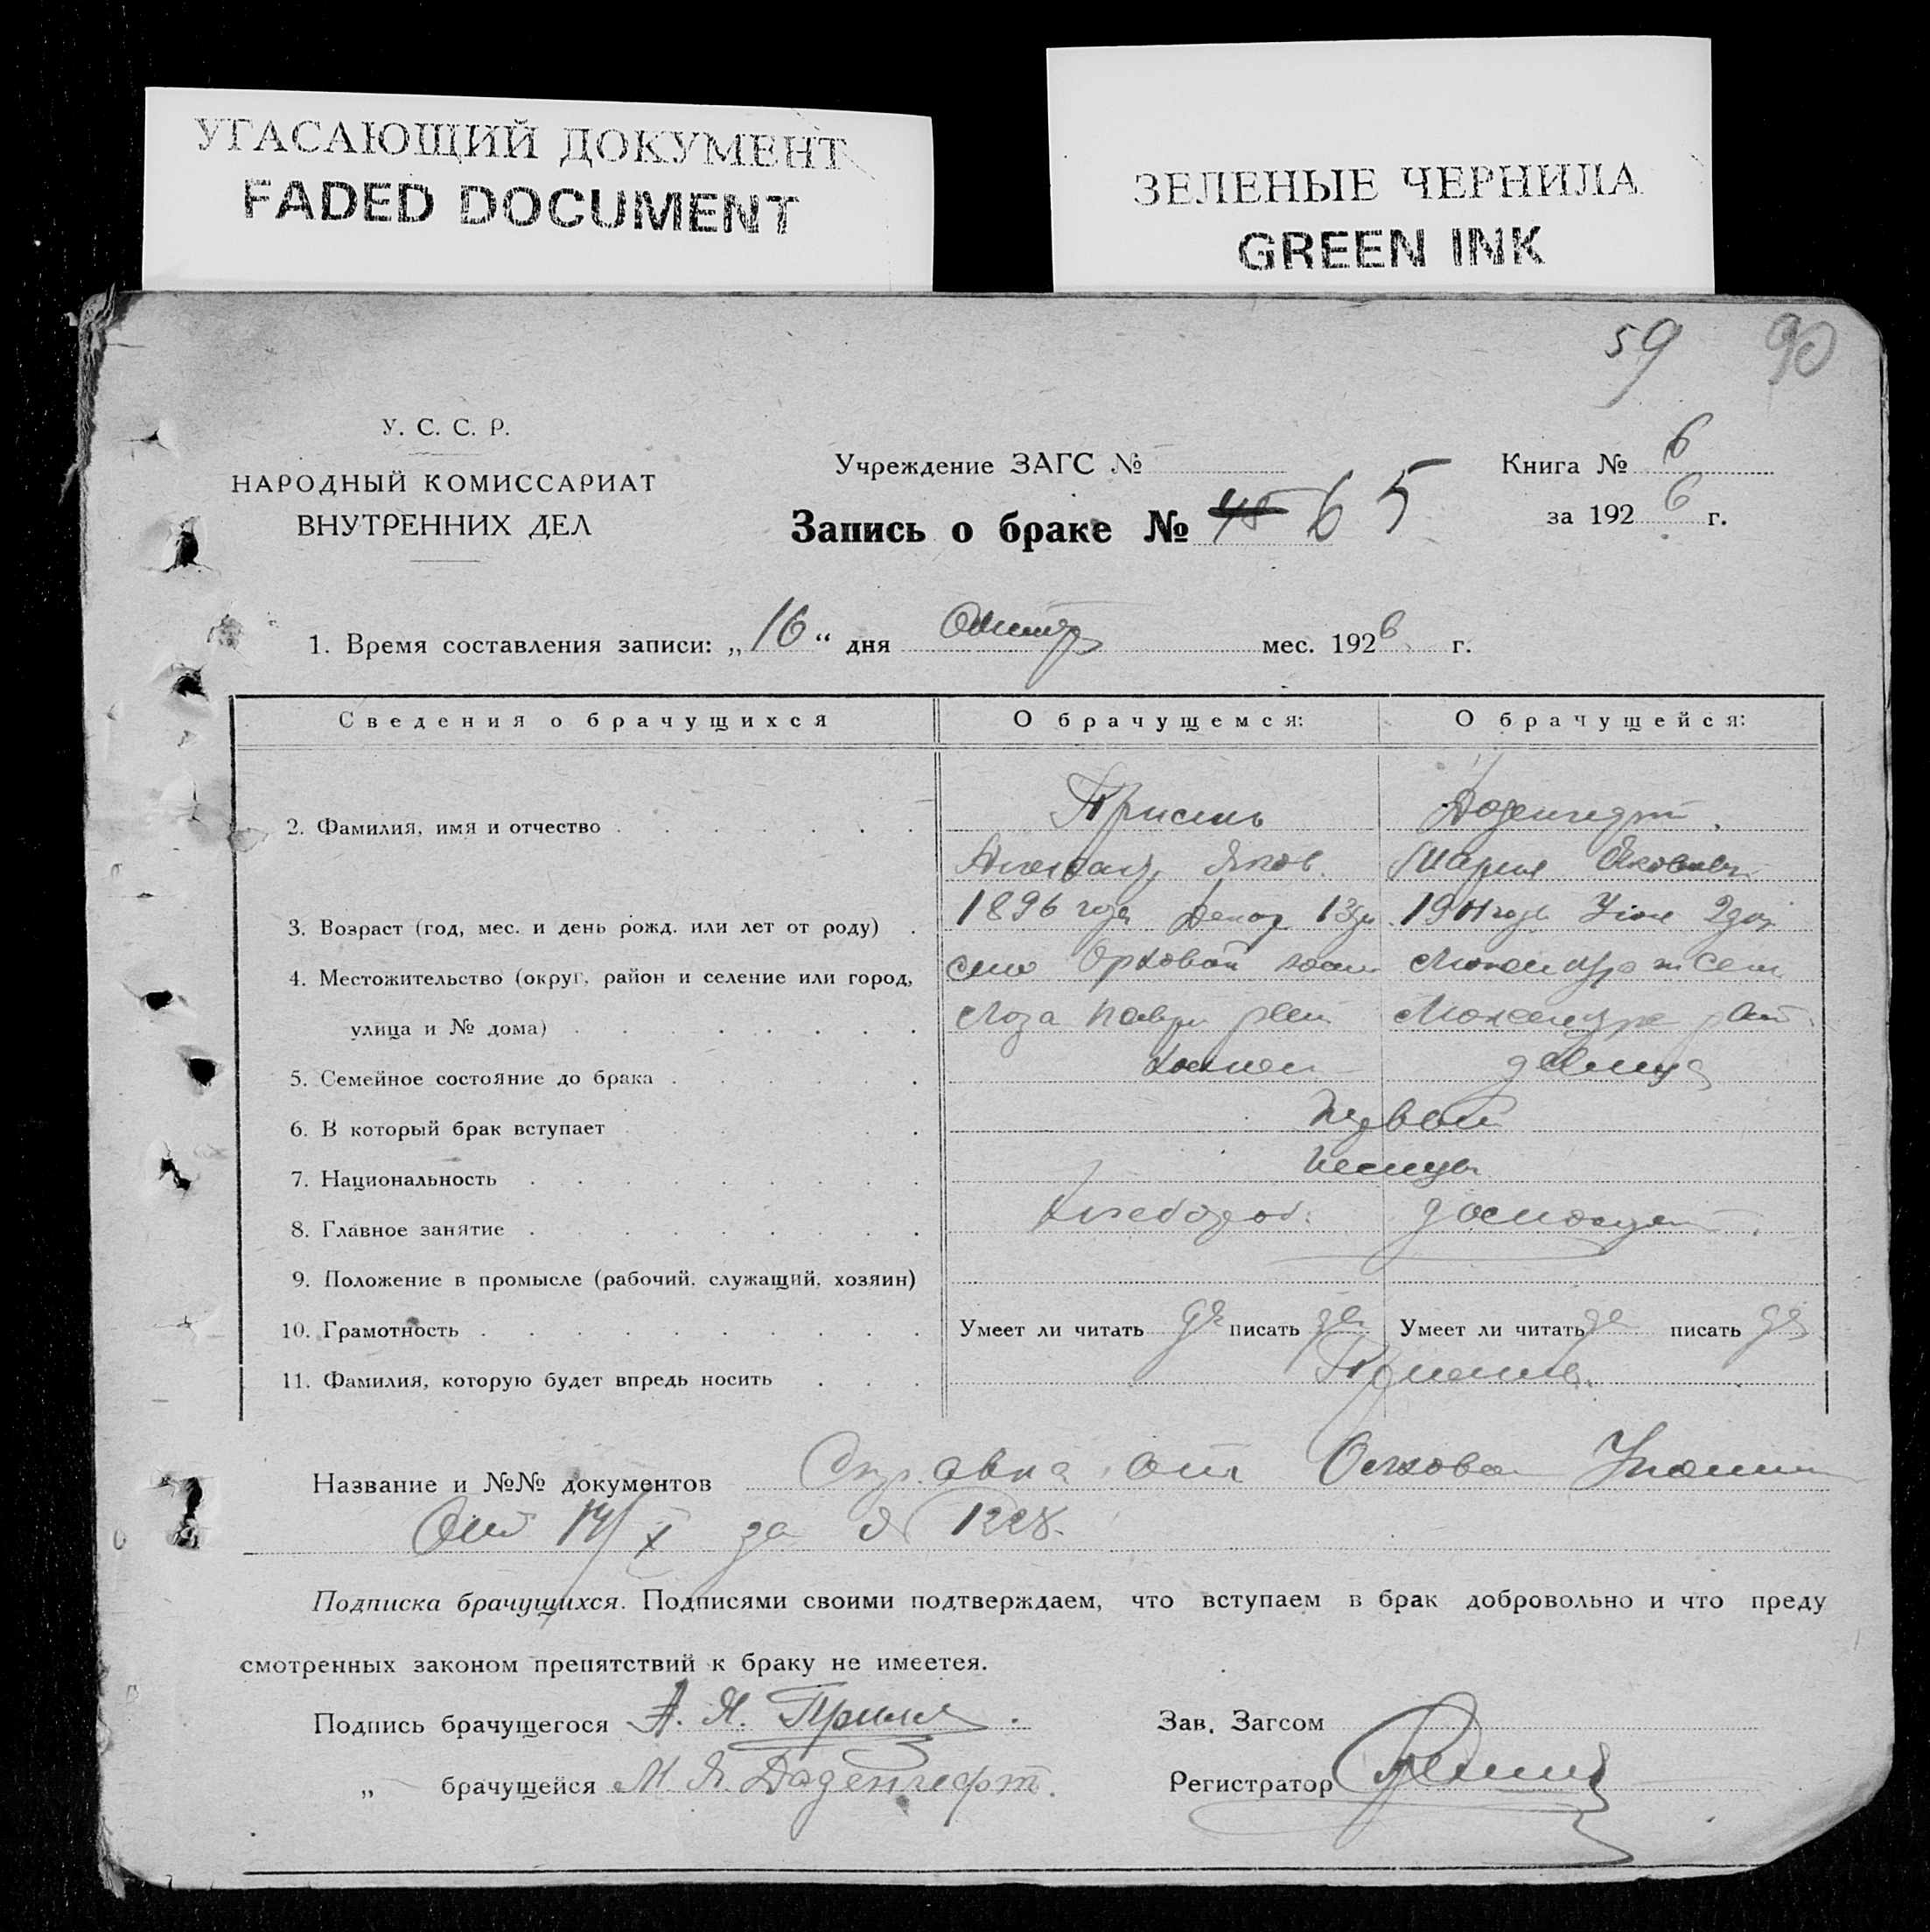 УГАСАЮЩИЙ ДОКУМЕНТ
FADED DOCUMENT
ЗЕЛЕНЫЕ ЧЕРНИЛА
GREEN INK
59 90
У. С. С. Р.
НАРОДНЫЙ КОМИССАРИАТ
ВНУТРЕННИХ ДЕЛ
Учреждение ЗАГС №
Запись о браке № 45 65
Книга № 6
за 1926 г.
1. Время составления записи: „16“ дня Октябр мес. 1926 г.
Сведения о брачущихся О брачущемся: О брачущейся:
2. Фамилия, имя и отчество
Яков. Мария Яковлев
3. Возраст (год, мес. и день рожд. или лет от роду) 1896 года 13 1901 года 2
4. Местожительство (округ, район и селение или город, село
улица и № дома)
5. Семейное состояние до брака холост девица
6. В который брак вступает первый
7. Национальность немцы
8. Главное занятие хлебороб. домохоз
9. Положение в промысле (рабочий, служащий, хозяин)
10. Грамотность Умеет ли читать да писать да Умеет ли читать да писать да
11. Фамилия, которую будет впредь носить
Название и №№ документов Справка от
От 14/X за № 1228.
Подписка брачущихся. Подписями своими подтверждаем, что вступаем в брак добровольно и что преду
смотренных законом препятствий к браку не имеется.
Подпись брачущегося А. Я. Зав. Загсом
„ брачущейся М. Я. Регистратор